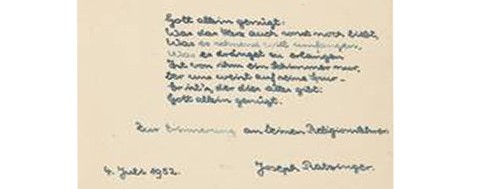 Gott allein genügt:
Was das Herz auch sonst noch liebt,
Was es sehnend will umfangen,
Was es dränget zu erlangen
Ist von ihm ein Schimmer nur,
Der uns weist auf seine Spur -
Er ist's, der dies alles gibt:
Gott allein genügt.
Zur Erinnerung an Deinen Religionslehrer
4. Juli 1952.
Joseph Ratzinger.